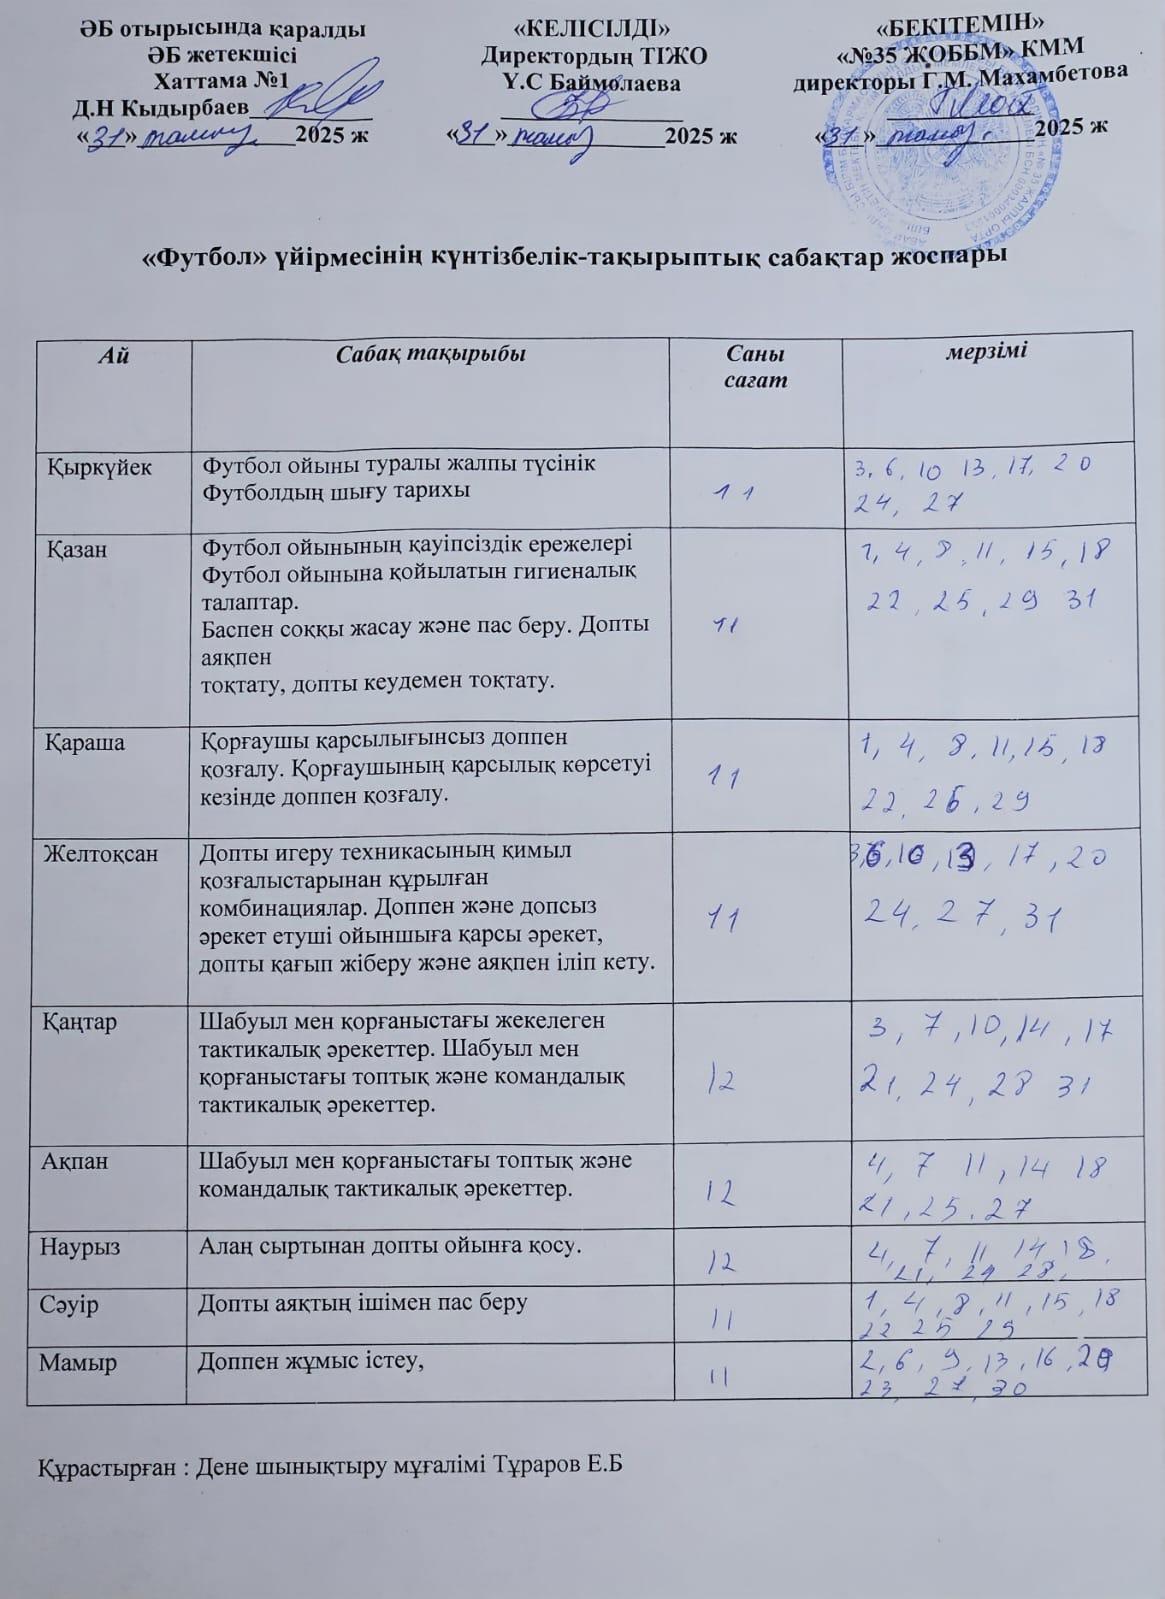 ӘБ отырысында қаралды
ӘБ жетекшісі
Хаттама №1
Д.Н Кыдырбаев
«31» тамыз 2025 ж
«КЕЛІСІЛДІ»
Директордың ТІЖО
Ү.С Баймолаева
«31» тамыз 2025 ж
«БЕКІТЕМІН»
«№35 ЖОББМ» КММ
директоры Г.М. Махамбетова
«31» тамыз 2025 ж
«Футбол» үйірмесінің күнтізбелік-тақырыптық сабақтар жоспары
Ай
Сабақ тақырыбы
Саны
сағат
мерзімі
Қыркүйек
Футбол ойыны туралы жалпы түсінік
Футболдың шығу тарихы
11
3, 6, 10 13, 17, 20
24, 27
Қазан
Футбол ойынының қауіпсіздік ережелері
Футбол ойынына қойылатын гигиеналық
талаптар.
Баспен соққы жасау және пас беру. Допты
аяқпен
тоқтату, допты кеудемен тоқтату.
11
1, 4, 8, 11, 15, 18
22, 25, 29 31
Қараша
Қорғаушы қарсылығынсыз доппен
қозғалу. Қорғаушының қарсылық көрсетуі
кезінде доппен қозғалу.
11
1, 4, 8, 11, 15, 18
22, 25, 29
Желтоқсан
Допты игеру техникасының қимыл
қозғалыстарынан құрылған
комбинациялар. Доппен және допсыз
әрекет етуші ойыншыға қарсы әрекет,
допты қағып жіберу және аяқпен іліп кету.
11
3, 6, 10, 13, 17, 20
24, 27, 31
Қаңтар
Шабуыл мен қорғаныстағы жекелеген
тактикалық әрекеттер. Шабуыл мен
қорғаныстағы топтық және командалық
тактикалық әрекеттер.
12
3, 7, 10, 14, 17
21, 24, 28 31
Ақпан
Шабуыл мен қорғаныстағы топтық және
командалық тактикалық әрекеттер.
12
4, 7 11, 14 18
21, 25. 27
Наурыз
Алаң сыртынан допты ойынға қосу.
12
4, 7, 11 14, 18,
21, 24 28,
Сәуір
Допты аяқтың ішімен пас беру
11
1, 4, 8, 11, 15, 18
22 25 29
Мамыр
Доппен жұмыс істеу,
11
2, 6, 9, 13, 16, 20
23, 27, 30
Құрастырған : Дене шынықтыру мұғалімі Тұраров Е.Б